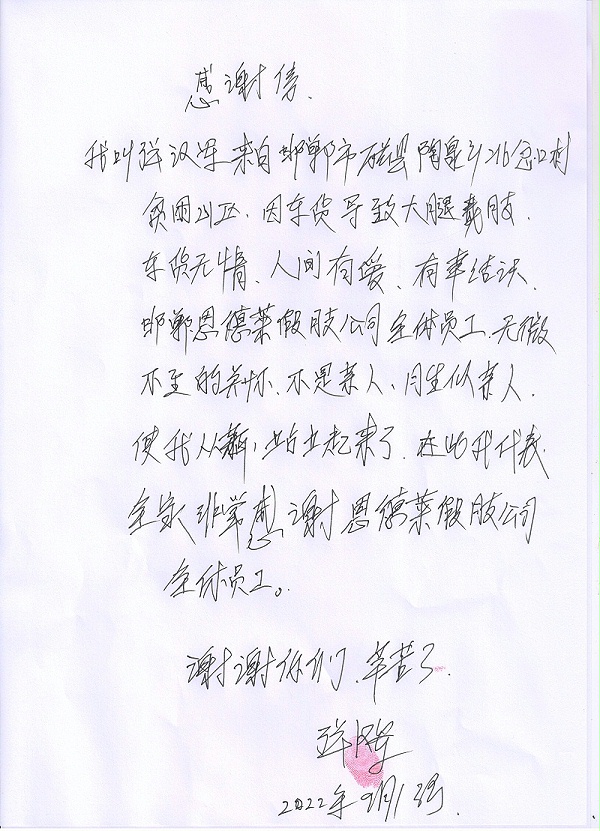 感谢信.
我叫 汉军 来自邯郸市磁县陶泉乡 口村
贫困 , 因车货导致大腿截肢.
车货无情、人间有爱、有幸结识
邯郸恩德莱假肢公司全体员工.无微
不至的关怀.不是亲人、 似亲人.
使我从新,站立起来了.在此我代表
全家非常感谢恩德莱假肢公司
全体员工。
谢谢你们、辛苦了.
2022年9月13号.